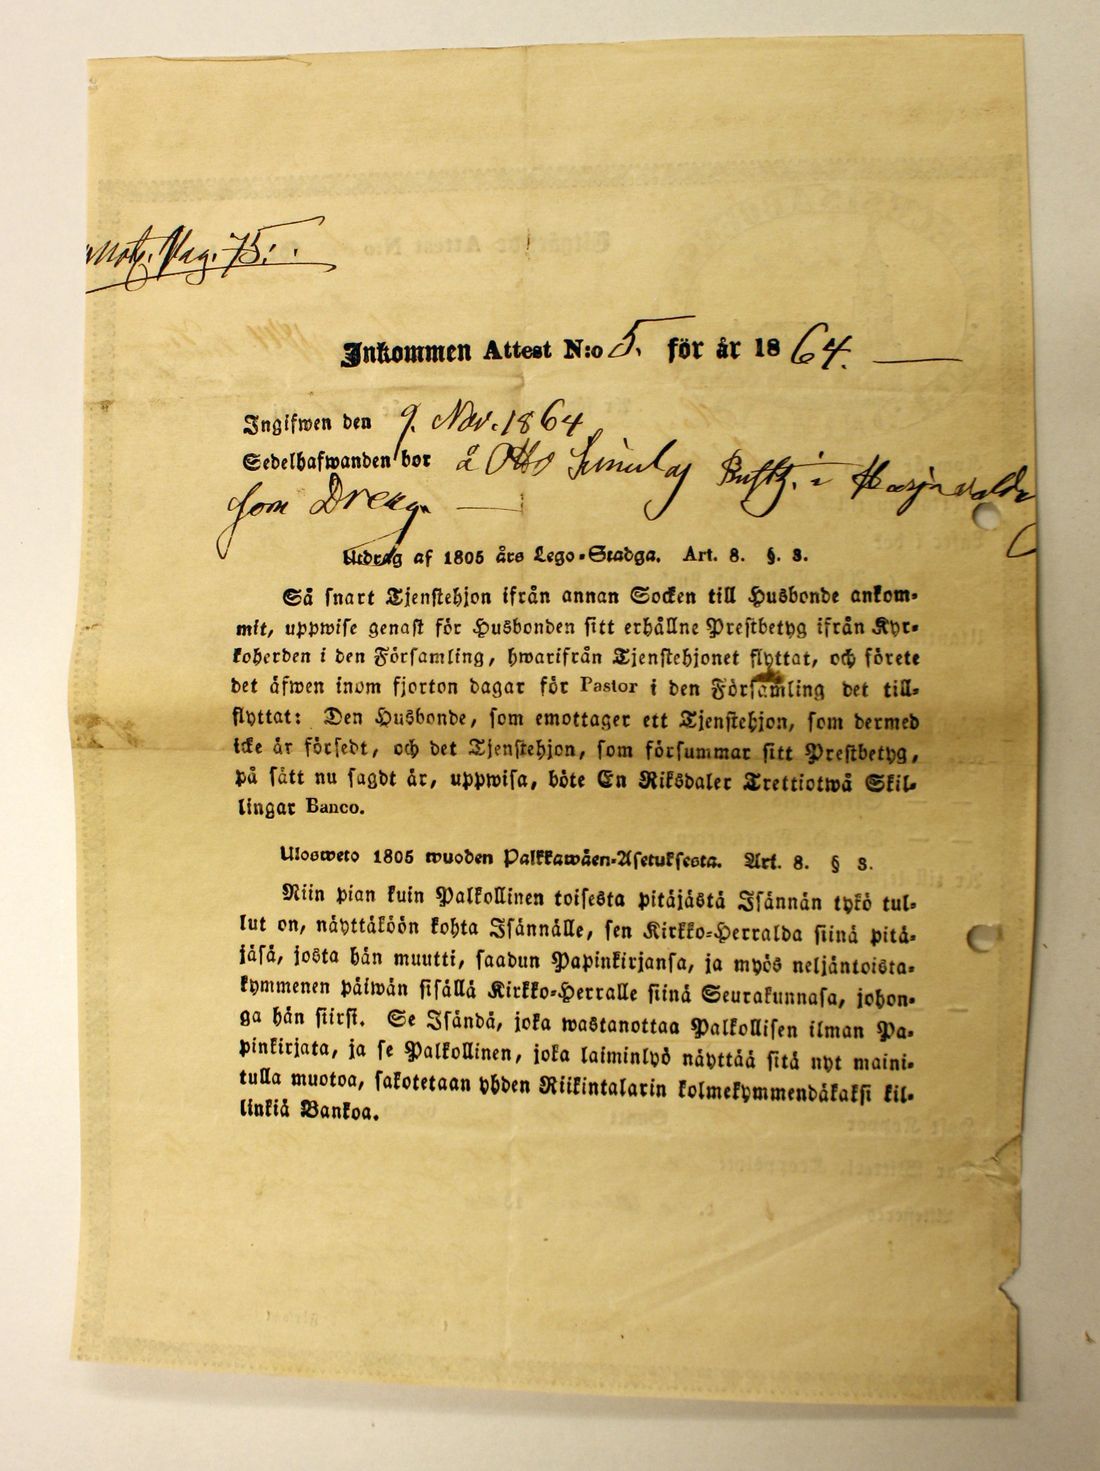 Pag. 75.
Inkommen Attest N:o 5. för år 1864.
Ingifwen den 9. Nov. 1864
Sedelhafwanden bor å Otto i
som Dreng.
Utdrag af 1805 års Lego-Stadga. Art. 8. §. 3.
Så snart Tjenstehjon ifrån annan Socken till Husbonde ankom-
mit, uppwise genast för Husbonden sitt erhållne Prestbetyg ifrån Kyr-
koherden i den Församling, hwarifrån Tjenstehjonet flyttat, och förete
det äfwen inom fjorton dagar för Pastor i den Församling det till-
flyttat: Den Husbonde, som emottager ett Tjenstehjon, som dermed
icke är försedt, och det Tjenstehjon, som försummar sitt Prestbetyg,
på sätt nu sagdt är, uppwisa, böte En Riksdaler Trettiotwå Skil-
lingar Banco.
Ulosweto 1805 wuoden Palkkawäen-Asetuksesta. Art. 8. § 3.
Niin pian kuin Palkollinen toisesta pitäjästä Isännän tykö tul-
lut on, näyttäköön kohta Isännälle, sen Kirkko-Herralda siinä pitä-
jäsä, josta hän muutti, saadun Papinkirjansa, ja myös neljäntoista-
kymmenen päiwän sisällä Kirkko-Herralle siinä Seurakunnasa, johon-
ga hän siirsi. Se Isändä, joka wastanottaa Palkollisen ilman Pa-
pinkirjata, ja se Palkollinen, joka laiminlyö näyttää sitä nyt maini-
tulla muotoa, sakotetaan yhden Riikintalarin kolmekymmendäkaksi kil-
linkiä Bankoa.